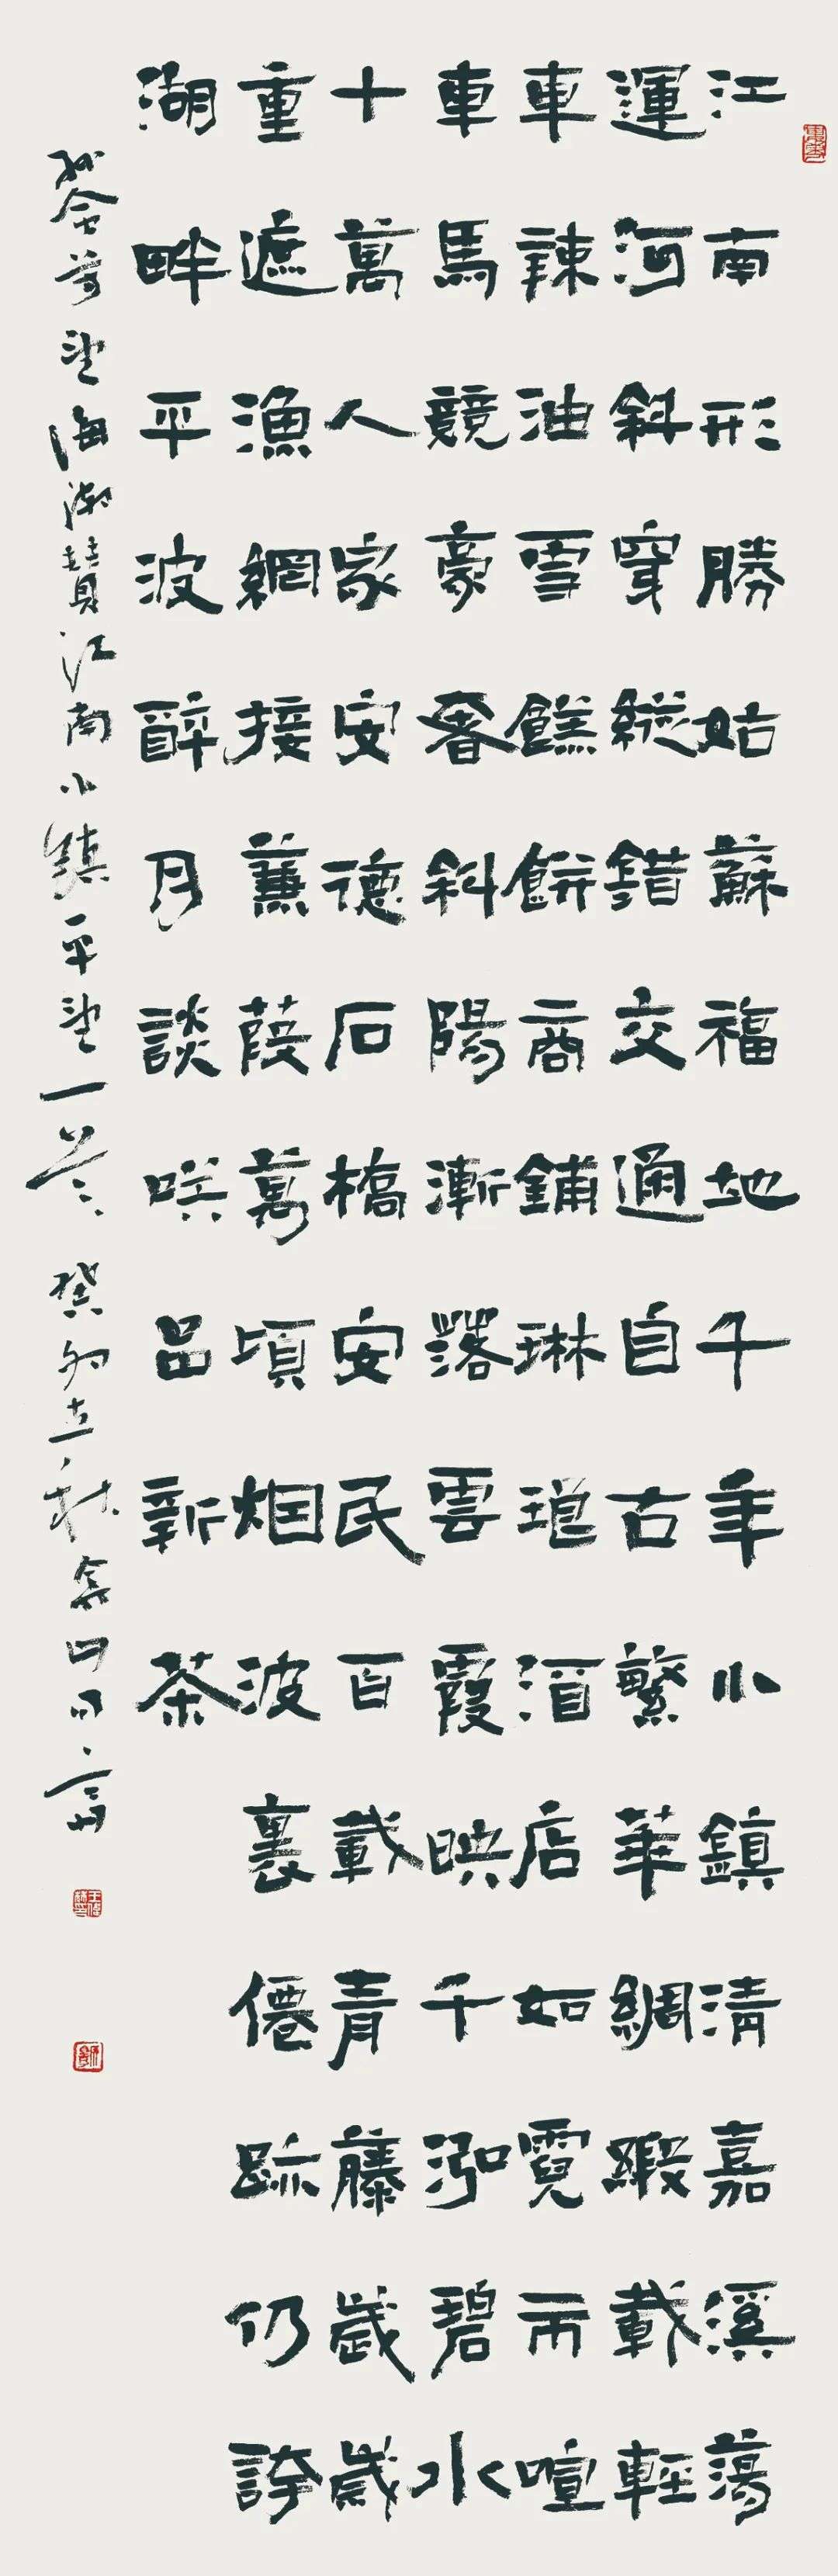 江南形勝姑蘇福地千年小鎮清嘉溪蕩
運河斜穿縱錯交通自古繁華綢緞載輕
車辣油雪餻餅商鋪琳琅酒店如霓市喧
車馬競豪奢斜陽漸落雲霞映千泓碧水
十萬人家安德石橋安民百載青藤歲歲
重遮漁網接蒹葭萬頃烟波裏僊跡仍誇
湖畔平波醉月談咲品新茶
望海潮贊江南小鎮平望一首 癸卯立秋